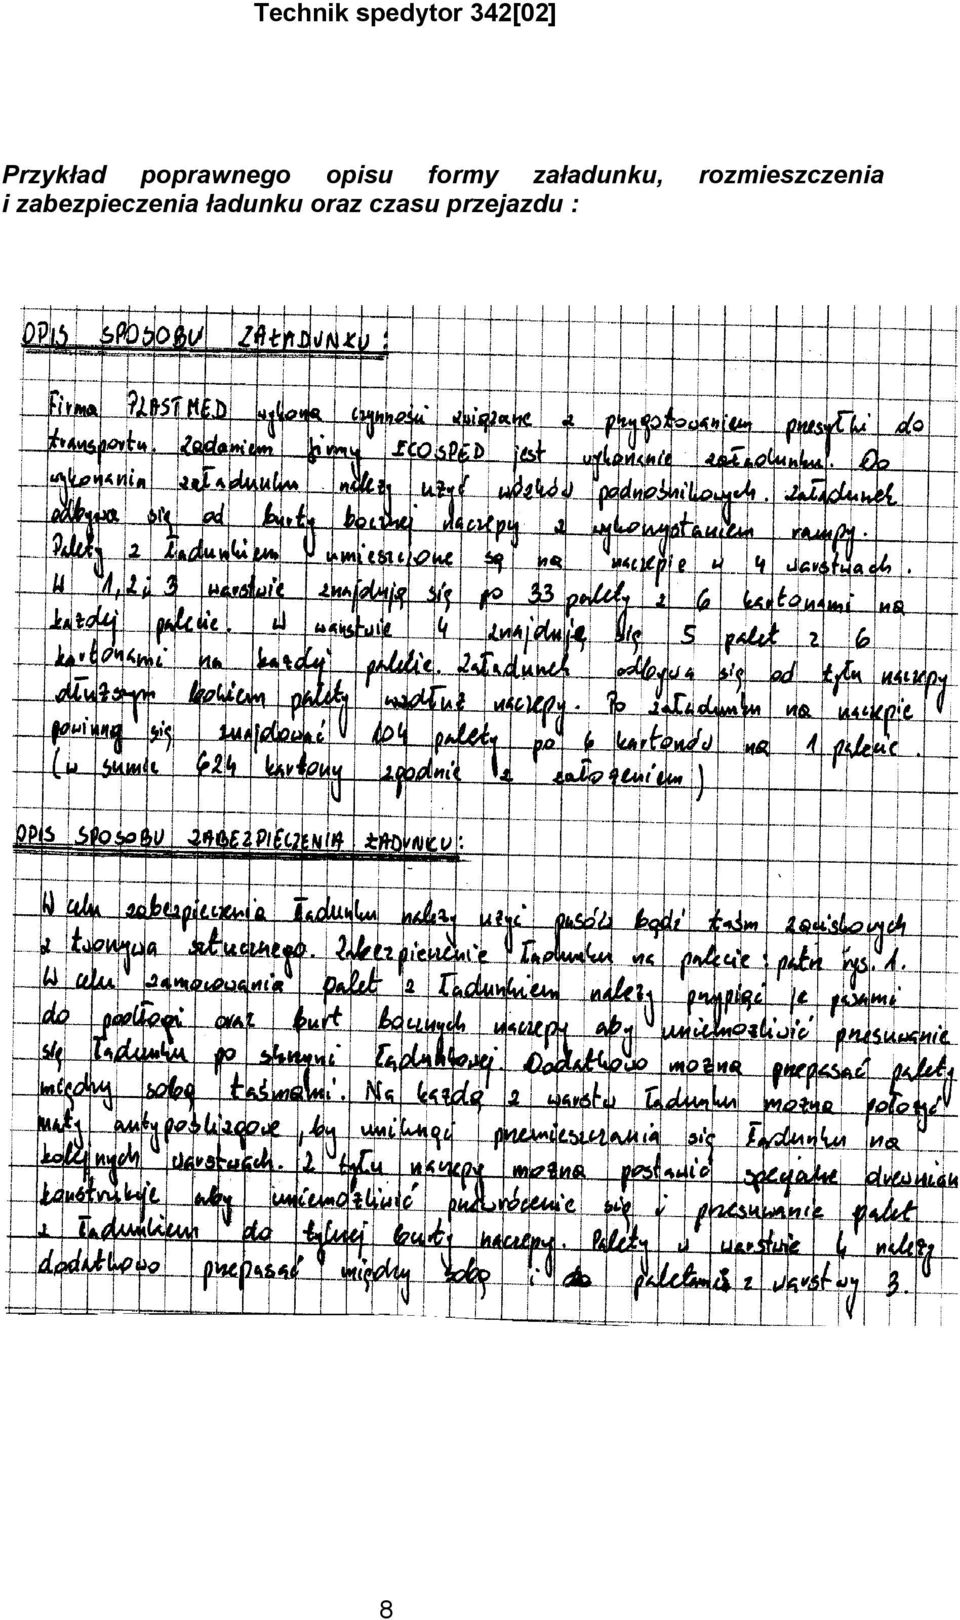 Technik spedytor 342[02]
Przykład poprawnego opisu formy załadunku, rozmieszczenia
i zabezpieczenia ładunku oraz czasu przejazdu :
OPIS SPOSOBU ZAŁADUNKU :
Firma PLASTMED wykona czynności związane z przygotowaniem przesyłki do
transportu. Zadaniem firmy ECOSPED jest wykonanie załadunku. Do
wykonania załadunku należy użyć wózków podnośnikowych. Załadunek
odbywa się od burty bocznej naczepy z wykorzystaniem rampy.
Palety z ładunkiem umieszczone są na naczepie w 4 warstwach.
W 1,2 i 3 warstwie znajduję się po 33 palety z 6 kartonami na
każdej palecie. W warstwie 4 znajduję się 5 palet z 6
kartonami na każdej palecie. Załadunek odbywa się od tyłu naczepy
dłuższym bokiem palety wzdłuż naczepy. Po załadunku na naczepie
powinny się znajdować 104 palety po 6 kartonów na 1 palecie.
(w sumie 624 kartony zgodnie z założeniem)
OPIS SPOSOBU ZABEZPIECZENIA ŁADUNKU:
W celu zabezpieczenia ładunku należy użyć pasów bądź taśm zaciskowych
z tworzywa sztucznego. Zabezpieczenie ładunku na palecie : patrz rys. 1.
W celu zamocowania palet z ładunkiem należy przypiąć je pasami
do podłogi oraz burt bocznych naczepy aby uniemożliwić przesuwanie
się ładunku po skrzyni ładunkowej. Dodatkowo można przepasać palety
między sobą taśmami. Na każdą z warstw ładunku można położyć
maty antypoślizgowe, by uniknąć przemieszczania się ładunku na
kolejnych warstwach. Z tyłu naczepy można postawić specjalne drewnian
konstrukcje aby uniemożliwić przewrócenie się i przesuwanie palet
z ładunkiem do tylnej burty naczepy. Palety w warstwie 4 należy
dodatkowo przepasać między sobą i paletami z warstwy 3.
8